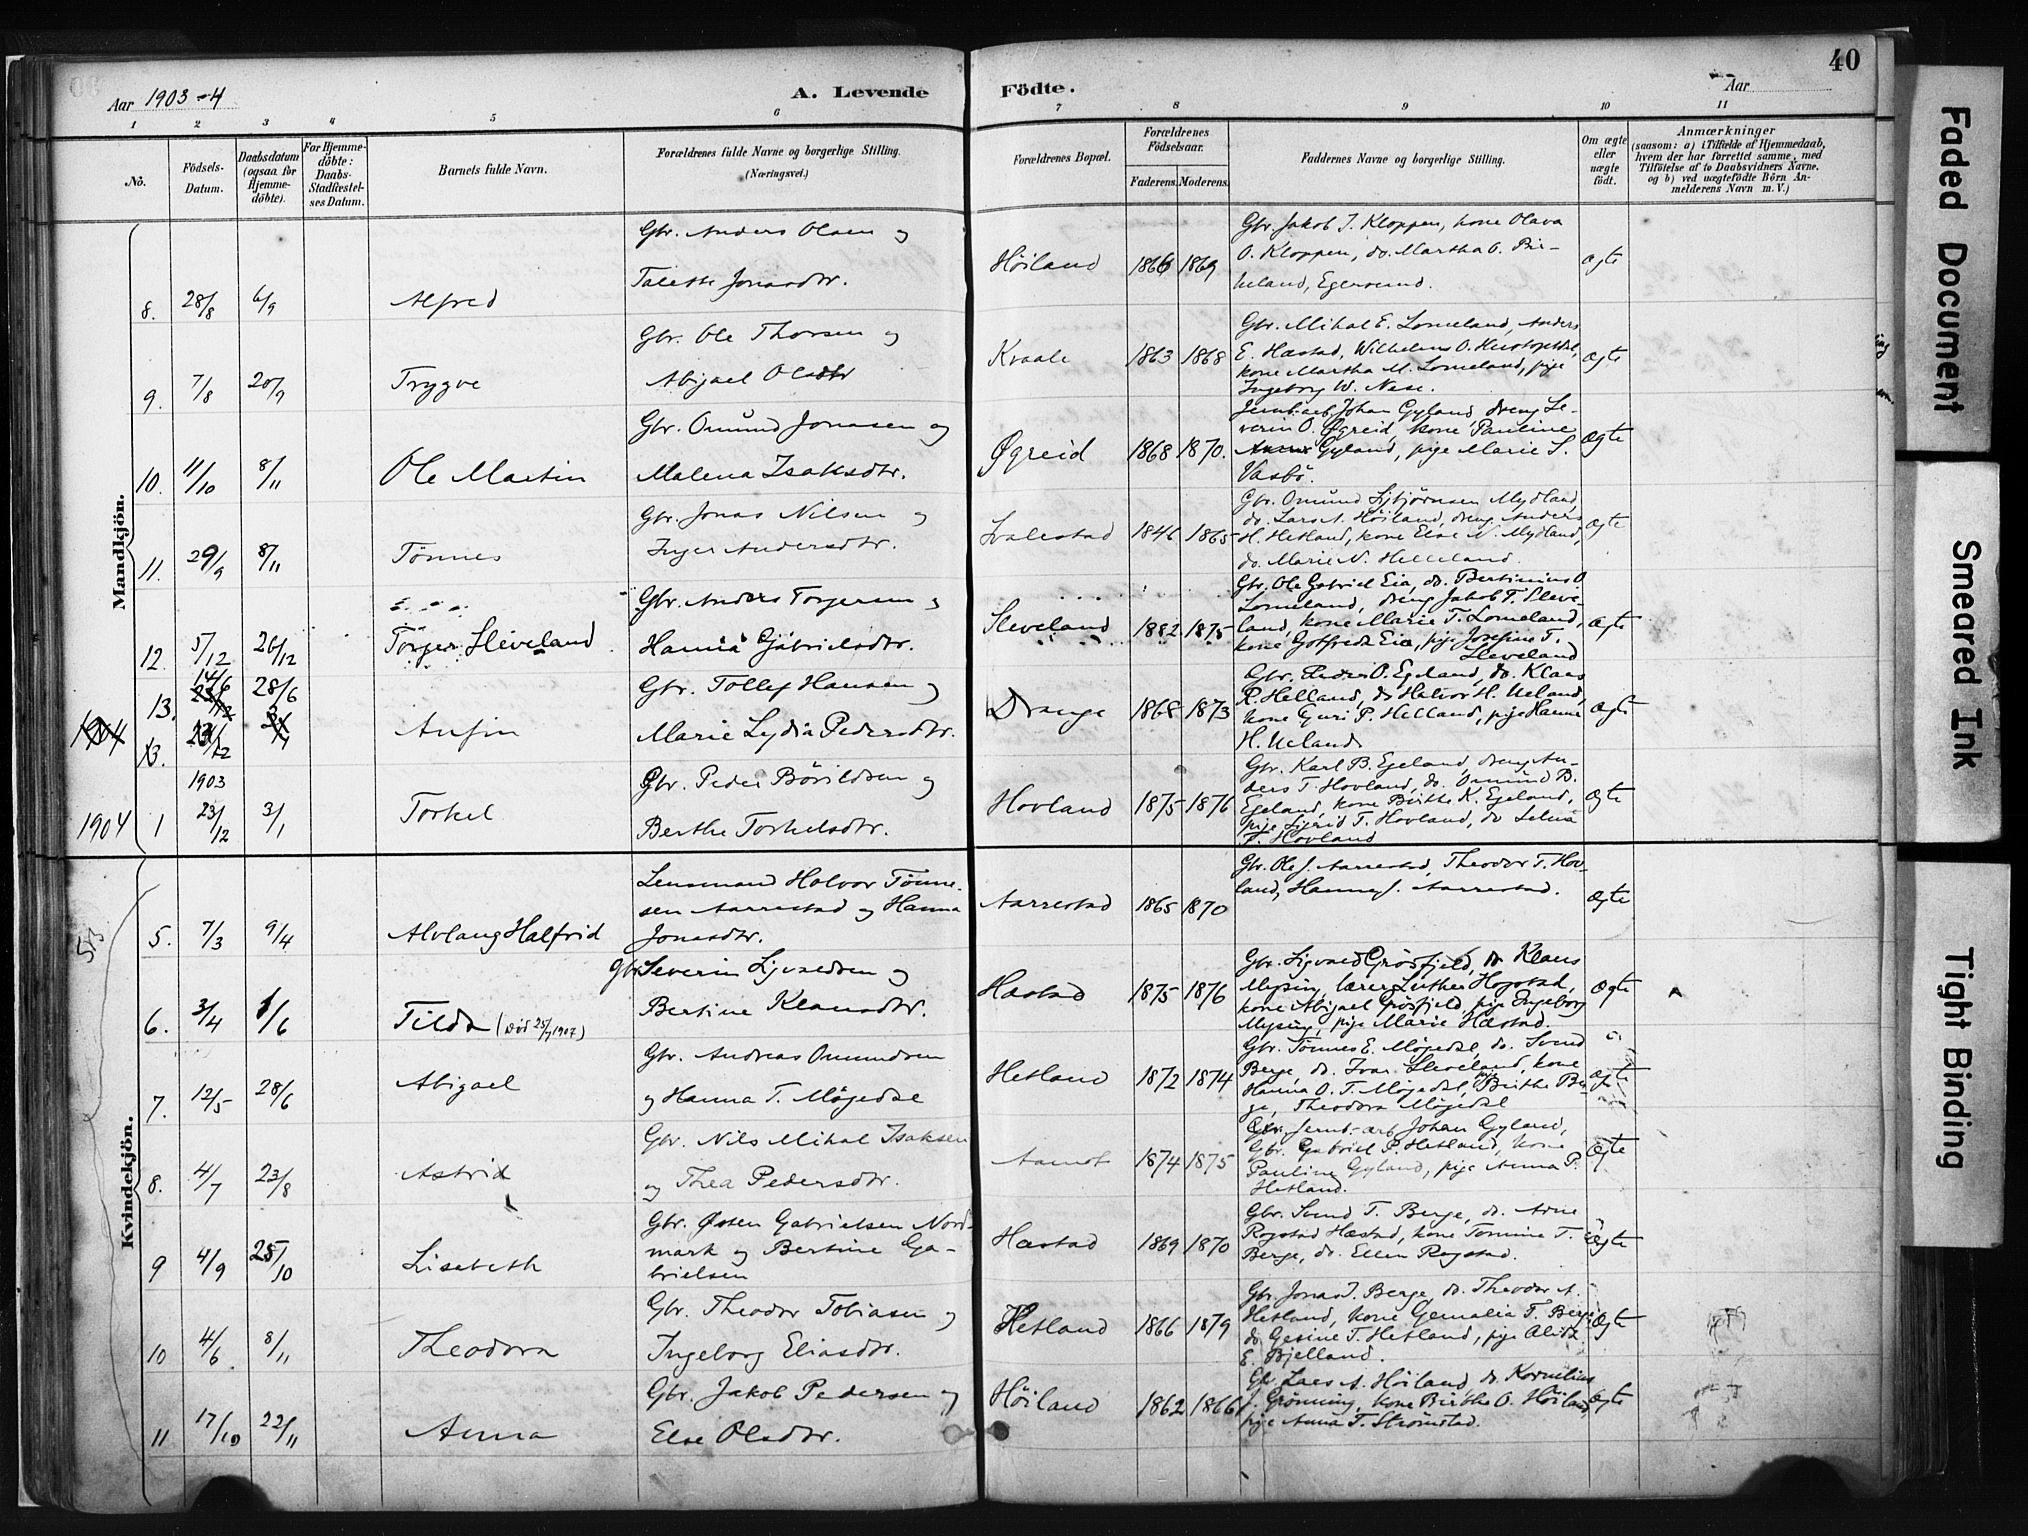 40
Aar 1903-4
A. Levende Födte.
Aar
1 2 3 4 5 6 7 8 9 10 11
No.
Födsels-Datum.
Daabsdatum (ogsaa for Hjemmedöbte).
For Hjemmedöbte: Daabs-Stadfestelses Datum.
Barnets fulde Navn.
Forældrenes fulde Navne og borgerlige Stilling. (Næringsvei.)
Forældrenes Bopæl.
Forældrenes Födselsaar.
Faderens. Moderens.
Faddernes Navne og borgerlige Stilling.
Om ægte eller uægte födt.
Anmærkninger
(saasom: a) i Tilfælde af Hjemmedaab, hvem der har forrettet samme, med Tilföielse af to Daabsvidners Navne. og b) ved uægtefödte Börn Anmelderens Navn m. V.)
Mandkjön.
8. 28/8 6/9 Alfred
Gbr. Anders Olsen og
Talette Jonasdtr.
Høiland 1866 1869
Gbr. Jakob J. Kloppen, kone Olava
O. Kloppen, do. Martha O. Bir-
keland, Egersund.
ægte
9. 7/8 20/9 Trygve
Gbr. Ole Thorsen og
Abigael Olsdtr
Kvaale 1863 1868
Gbr. Mikal E. Lomeland, Anders
E. Hæstad, Wilhelm O.
kone Martha M. Lomeland, pige
Ingeborg W. Nese.
Ægte
10. 11/10 8/11 Ole Martin
Gbr. Omund Jonasen og
Malena Isaksdtr.
Øgreid 1868 1870.
Jernb.arb. Johan Gyland, dreng Se-
verin O. Øgreid, kone Pauline
Gyland, pige Marie S.
Vasbø.
Ægte
11. 29/9 8/11 Tønnes
Gbr. Jonas Nilsen og
Inger Andersdtr.
Svalestad 1846 1865
Gbr. Omund Sigbjørnsen Mydland,
do. Lars A. Høiland, dreng Anders
H. Hetland, kone Else N. Mydland,
do. Marie N. Helleland
ægte
12. 5/12 26/12 Torger Sleveland
Gbr. Anders Torgersen og
Hanna Gabrielsdtr.
Sleveland 1882 1875
Gbr. Ole Gabriel Eia, do. Bertinius O
Lomeland, dreng Jakob T. Sleve-
land, kone Marie T. Lomeland,
kone Gotfreda Eia, pige Josefine T.
Sleveland
Ægte
13. 14/6 28/6 Anfin
Gbr. Tollef Hansen og
Marie Lydia Pedersdtr.
Drange 1868 1873
Gbr. Peder O. Egeland, do. Klaas
P. Helland, do Halvor H. Ueland,
kone Guri P. Helland, pige Hanna
H. Ueland
Ægte
1904 1 1903 23/12 3/1 Torkel
Gbr. Peder Børildsen og
Berthe Torkelsdtr.
Hovland 1875 1876
Gbr. Karl B. Egeland, dreng An-
ders T. Hovland, do. Omund B.
Egeland, kone Birthe K. Egeland,
pige Sigrid T. Hovland, do Selma
T. Hovland
Ægte
Kvindekjön.
5. 7/3 9/4 Alvlaug Halfrid
Lensmand Halvor Tønne-
sen Aarrestad og Hanna
Jonasdtr.
Aarrestad 1865 1870
Gbr. Ole J. Aarrestad, Theodor T. Hov-
land, Hanna J. Aarrestad.
Ægte
6. 3/4 1/6 Tilda (død 25/7 1907)
Gbr. Severin Sigvaldsen og
Bertine Klausdtr.
Hæstad 1875 1876
Gbr. Sigvald Grøsfjeld, do Klaus
Mysing, lærer Luther Hogstad,
kone Abigael Grøsfjeld, pige Ingeborg
Mysing, pige Marie Hæstad.
Ægte
7. 12/5 28/6 Abigael
Gbr. Andreas Omundsen
og Hanna T. Møgedal
Hetland 1872 1874
Gbr. Tønnes E. Møgedal, do. Svend
Berge, do. Ivar Sleveland, kone
Hanna O. T. Møgedal, pige Birthe Ber-
ge, Theodora Møgedal
ægte
8. 4/7 23/8 Astrid
Gbr. Nils Mikal Isaksen
og Thea Pedersdtr.
Aamot 1874 1875
Jernb.-arb Johan Gyland,
Gbr. Gabriel P. Hetland, kone
Pauline Gyland, pige Anna P.
Hetland.
Ægte
9 4/9 25/10 Lisabeth
Gbr. Østen Gabrielsen Nord-
mark og Bertine Ga-
brielsen
Hæstad 1869 1870
Gbr. Svend T. Berge, do. Arne
Rogstad Hæstad, kone Tomine T.
Berge, do. Ellen Rogstad.
Ægte
10 4/6 8/11 Theodora
Gbr. Theodor Tobiasen og
Ingeborg Eliasdtr.
Hetland 1866 1879
Gbr. Jonas T. Berge, do. Theodor A.
Hetland, kone Gemalia T. Berge,
do. Gesine T. Hetland, pige Alida
E. Bjelland.
Ægte
11 17/10 22/11 Anna
Gbr. Jakob Pedersen og
Else Olsdtr.
Høiland 1862 1866
Gbr. Lars A. Høiland, do. Kornelius
J. Grønning, kone Birthe O. Høiland,
pige Anna T. Strømstad.
Ægte
Faded Document
Smeared Ink
Tight Binding